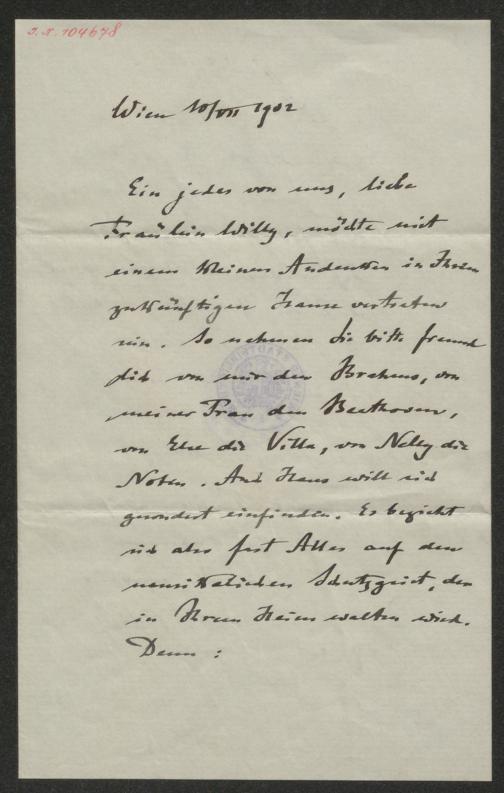 I. N. 104678
Wien 10/VII 1902
Ein jedes von uns, liebe
Fräulein Willy, möchte mit
einem kleinen Andenken in Ihrem
zukünftigen Hause vertreten
sein. So nehmen Sie bitte freund
lich von mir den Brahms, von
meiner Frau den Beethoven,
von Else die Villa, von Nelly die
Noten. Auch Hans will sich
gesondert einfinden. Es bezieht
sich also fast Alles auf den
musikalischen Schutzgeist, der
in Ihrem Heim walten wird.
Denn :